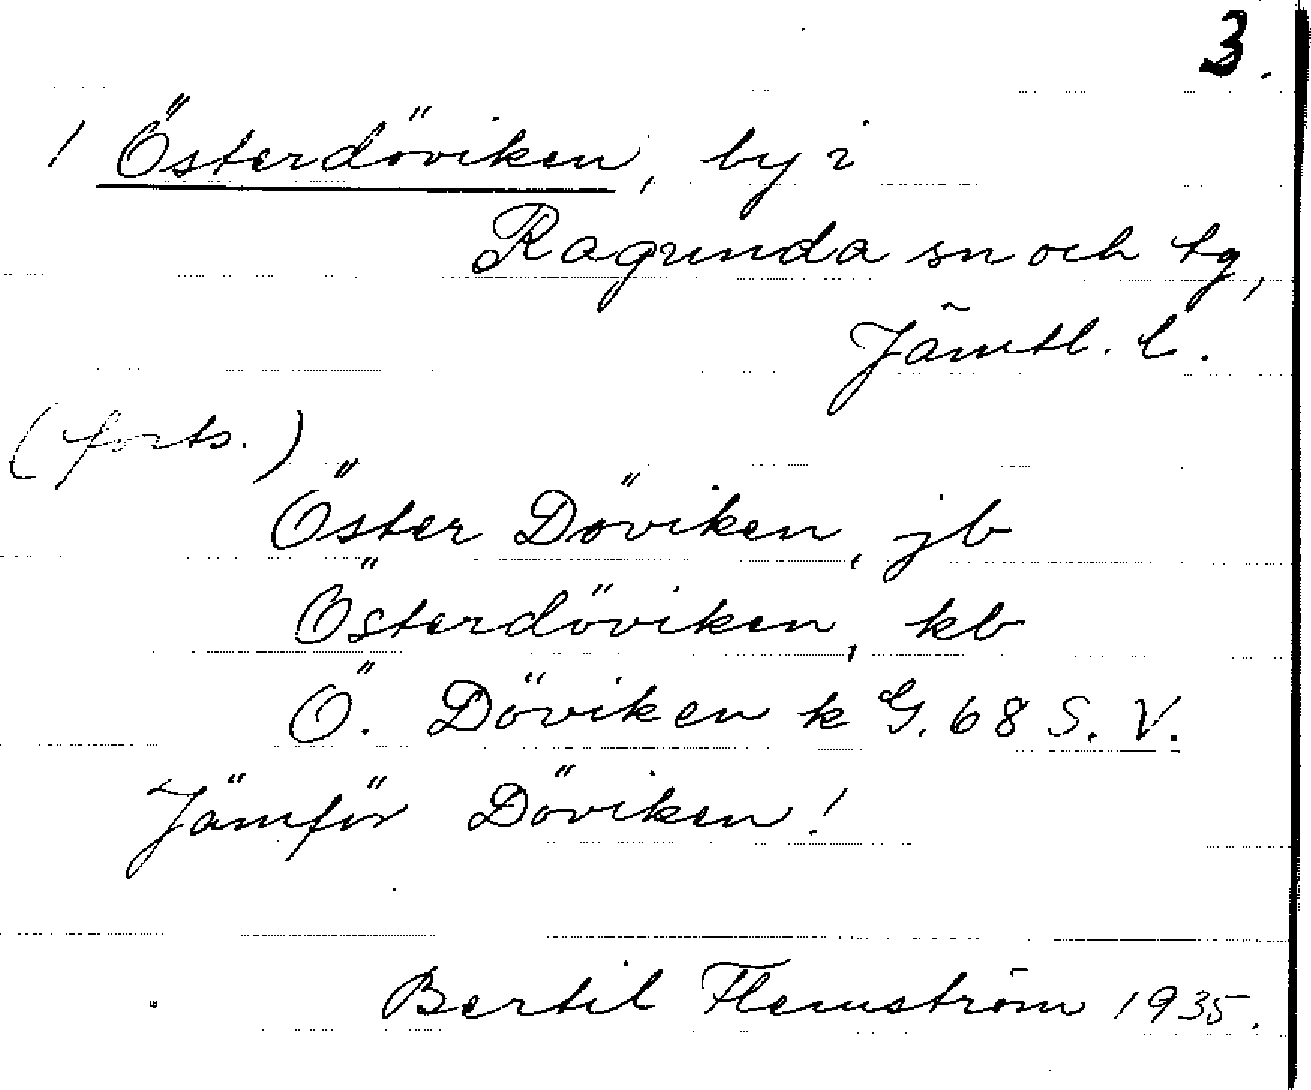 3.
1 Österdöviken, by i
Ragunda sn och tg,
Jämtl. l.
(forts.)
Öster Döviken, jb
Österdöviken, kb
Ö. Döviken k G. 68 S. V.
Jämför Döviken!
Bertil Flemström 1935.